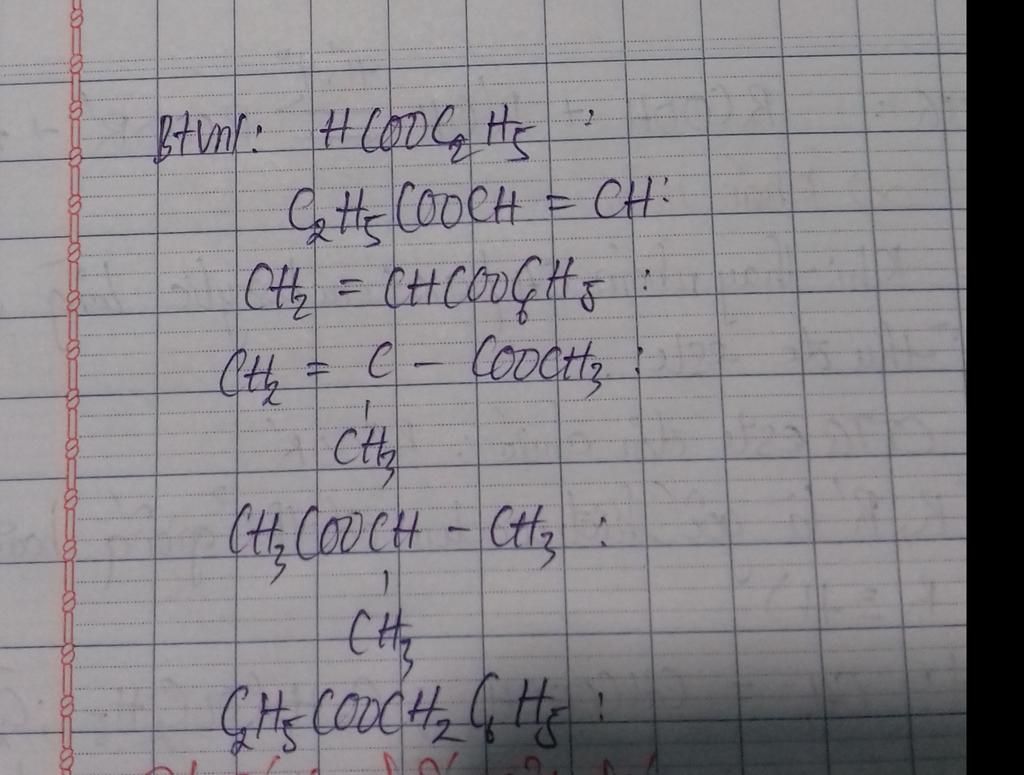 Btvn: HCOOC₂H₅ :
C₂H₅COOCH = CH:
CH₂ = CHCOOC₆H₅ :
CH₂ = C – COOCH₃ :
CH₃
CH₃COOCH – CH₃ :
CH₃
C₂H₅COOCH₂C₆H₅ :